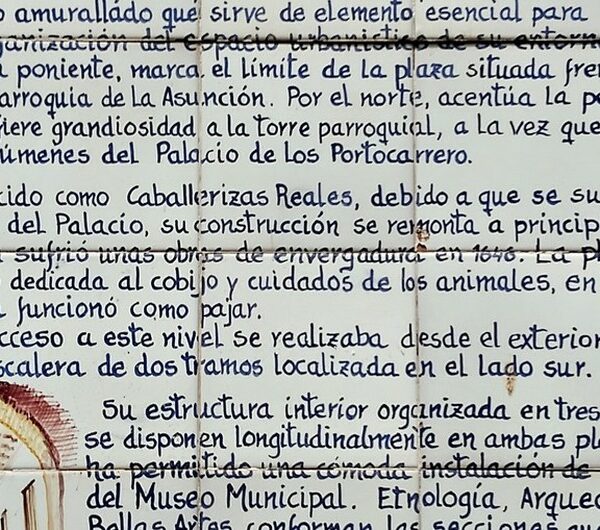 o amurallado que sirve de elemento esencial para
ganización del espacio urbanístico de su entorno
poniente, marca el límite de la plaza situada fren
arroquia de La Asunción. Por el norte, acentúa la pe
fiere grandiosidad a la torre parroquial, a la vez que
úmenes del Palacio de los Portocarrero.
cido como Caballerizas Reales, debido a que se su
del Palacio, su construcción se remonta a princip
sufrió unas obras de envergadura en 1646. La pl
dedicada al cobijo y cuidados de los animales, en
funcionó como pajar.
cceso a este nivel se realizaba desde el exterior
scalera de dos tramos localizada en el lado sur.
Su estructura interior organizada en tres
se disponen longitudinalmente en ambas pl
ha permitido una cómoda instalación de
del Museo Municipal. Etnología, Arqueo
Bellas Artes conforman las seccio